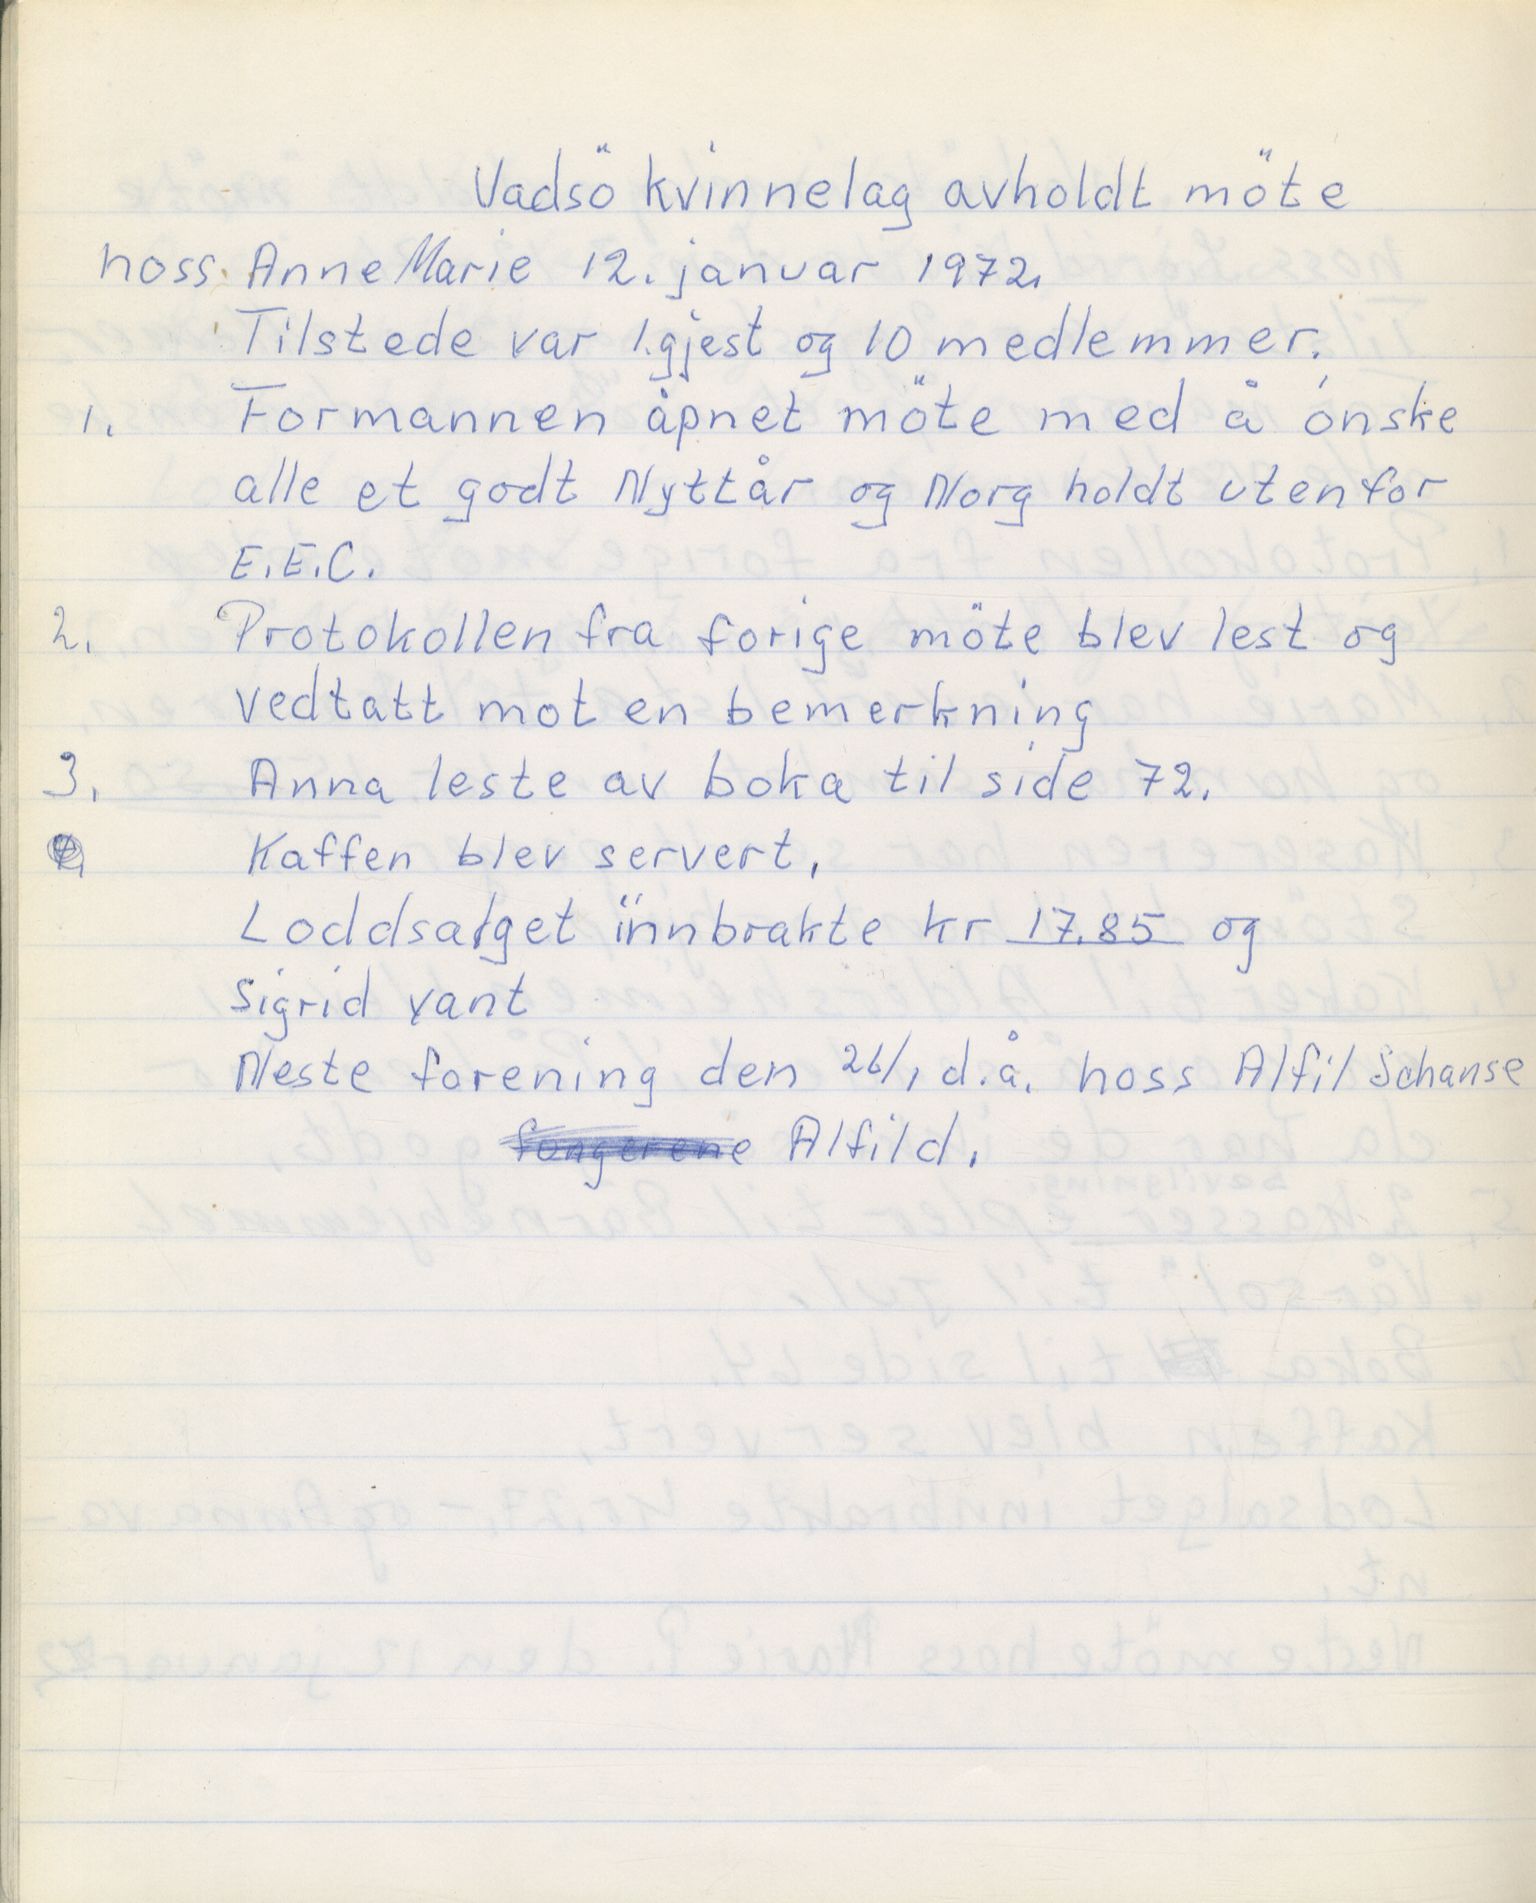 Vadsö kvinnelag avholdt möte
hoss Anne Marie 12. januar 1972.
Tilstede var 1.gjest og 10 medlemmer.
1. Formannen åpnet möte med å ónske
alle et godt Nyttår og Norg holdt utenfor
E.E.C.
2. Protokollen fra forige möte blev lest og
vedtatt mot en bemerkning
3. Anna leste av boka til side 72.
Kaffen blev servert,
Loddsalget innbrakte kr 17.85 og
Sigrid vant
Neste forening den 26/1 d.å. hoss Alfil Schanse
Alfild.